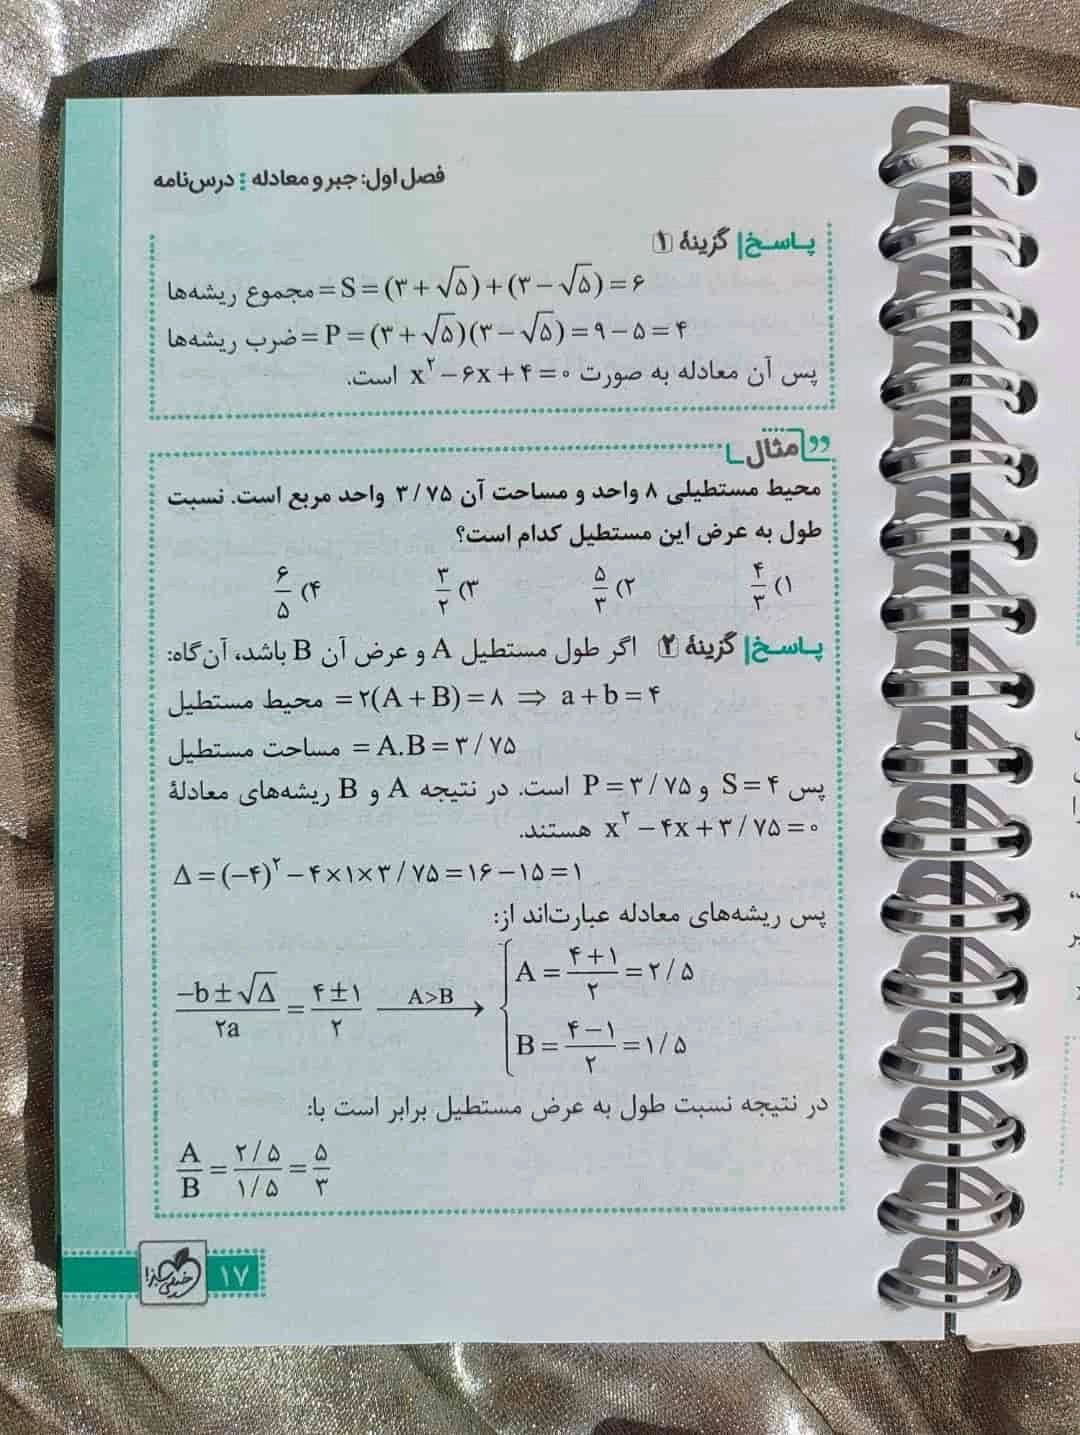 فصل اول: جبر و معادله ⁝ درس‌نامه
پاسخ| گزینهٔ ۱
مجموع ریشه‌ها = S = (۳ + √۵) + (۳ − √۵) = ۶
ضرب ریشه‌ها = P = (۳ + √۵)(۳ − √۵) = ۹ − ۵ = ۴
پس آن معادله به صورت x² − ۶x + ۴ = ۰ است.
مثال
محیط مستطیلی ۸ واحد و مساحت آن ۳/۷۵ واحد مربع است. نسبت
طول به عرض این مستطیل کدام است؟
۱) ۴/۳ ۲) ۵/۳ ۳) ۳/۲ ۴) ۶/۵
پاسخ| گزینهٔ ۲ اگر طول مستطیل A و عرض آن B باشد، آن‌گاه:
محیط مستطیل = ۲(A + B) = ۸ ⇒ a + b = ۴
مساحت مستطیل = A.B = ۳/۷۵
پس S = ۴ و P = ۳/۷۵ است. در نتیجه A و B ریشه‌های معادلهٔ
x² − ۴x + ۳/۷۵ = ۰ هستند.
Δ = (−۴)² − ۴×۱×۳/۷۵ = ۱۶ − ۱۵ = ۱
پس ریشه‌های معادله عبارت‌اند از:
(−b ± √Δ)/۲a = (۴ ± ۱)/۲ A>B → { A = (۴ + ۱)/۲ = ۲/۵
B = (۴ − ۱)/۲ = ۱/۵
در نتیجه نسبت طول به عرض مستطیل برابر است با:
A/B = ۲/۵ / ۱/۵ = ۵/۳
خیلی سبز
۱۷